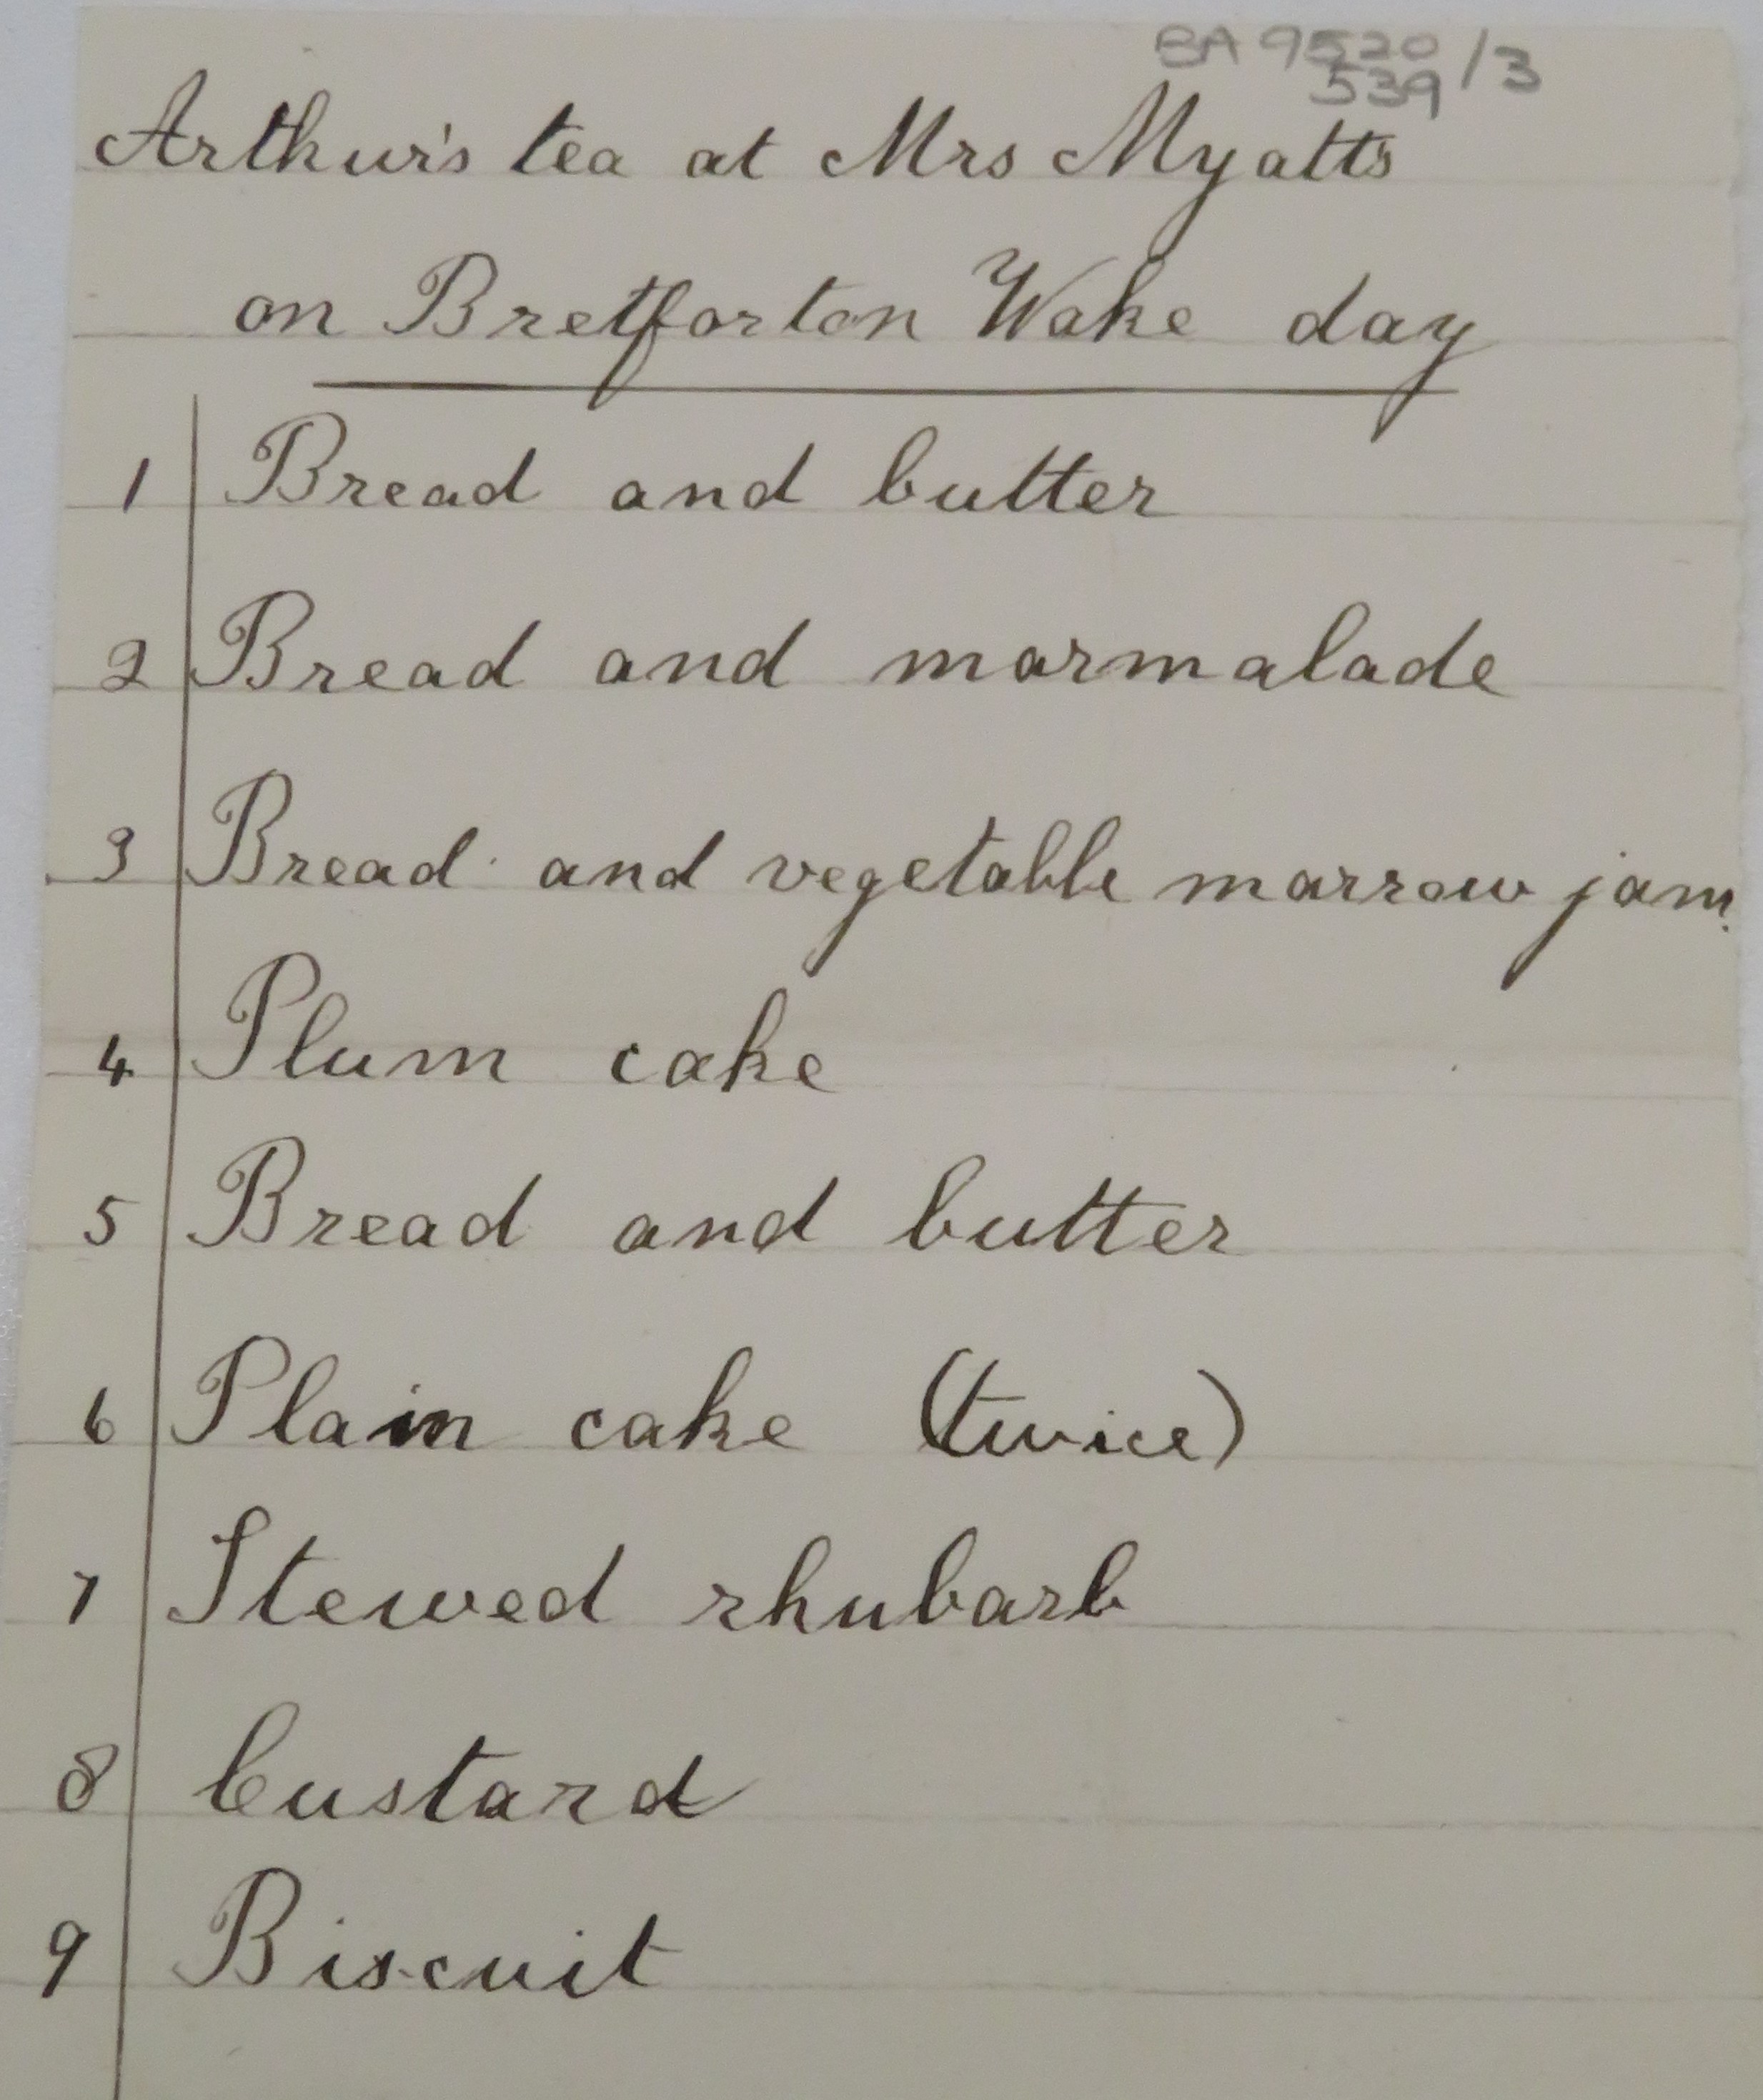 BA 9520 /3
539
Arthur's tea at Mrs Myatts
on Bretforton Wake day
1 Bread and butter
2 Bread and marmalade
3 Bread and vegetable marrow jam.
4 Plum cake
5 Bread and butter
6 Plain cake (twice)
7 Stewed rhubarb
8 Custard
9 Biscuit